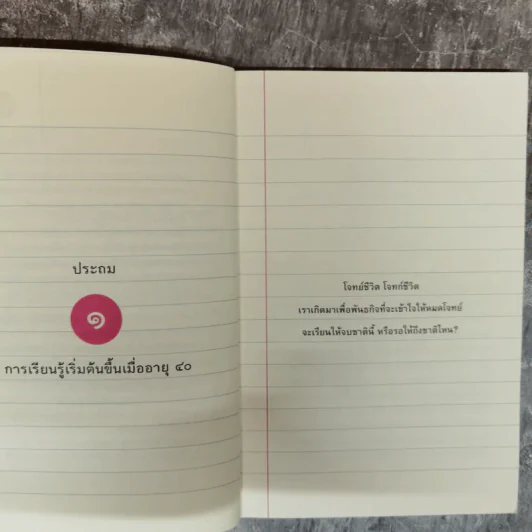 ประถม
๑
การเรียนรู้เริ่มต้นขึ้นเมื่ออายุ ๔๐
โจทย์ชีวิต โจทก์ชีวิต
เราเกิดมาเพื่อพันธกิจที่จะเข้าใจให้หมดโจทย์
จะเรียนให้จบชาตินี้ หรือรอให้ถึงชาติไหน?